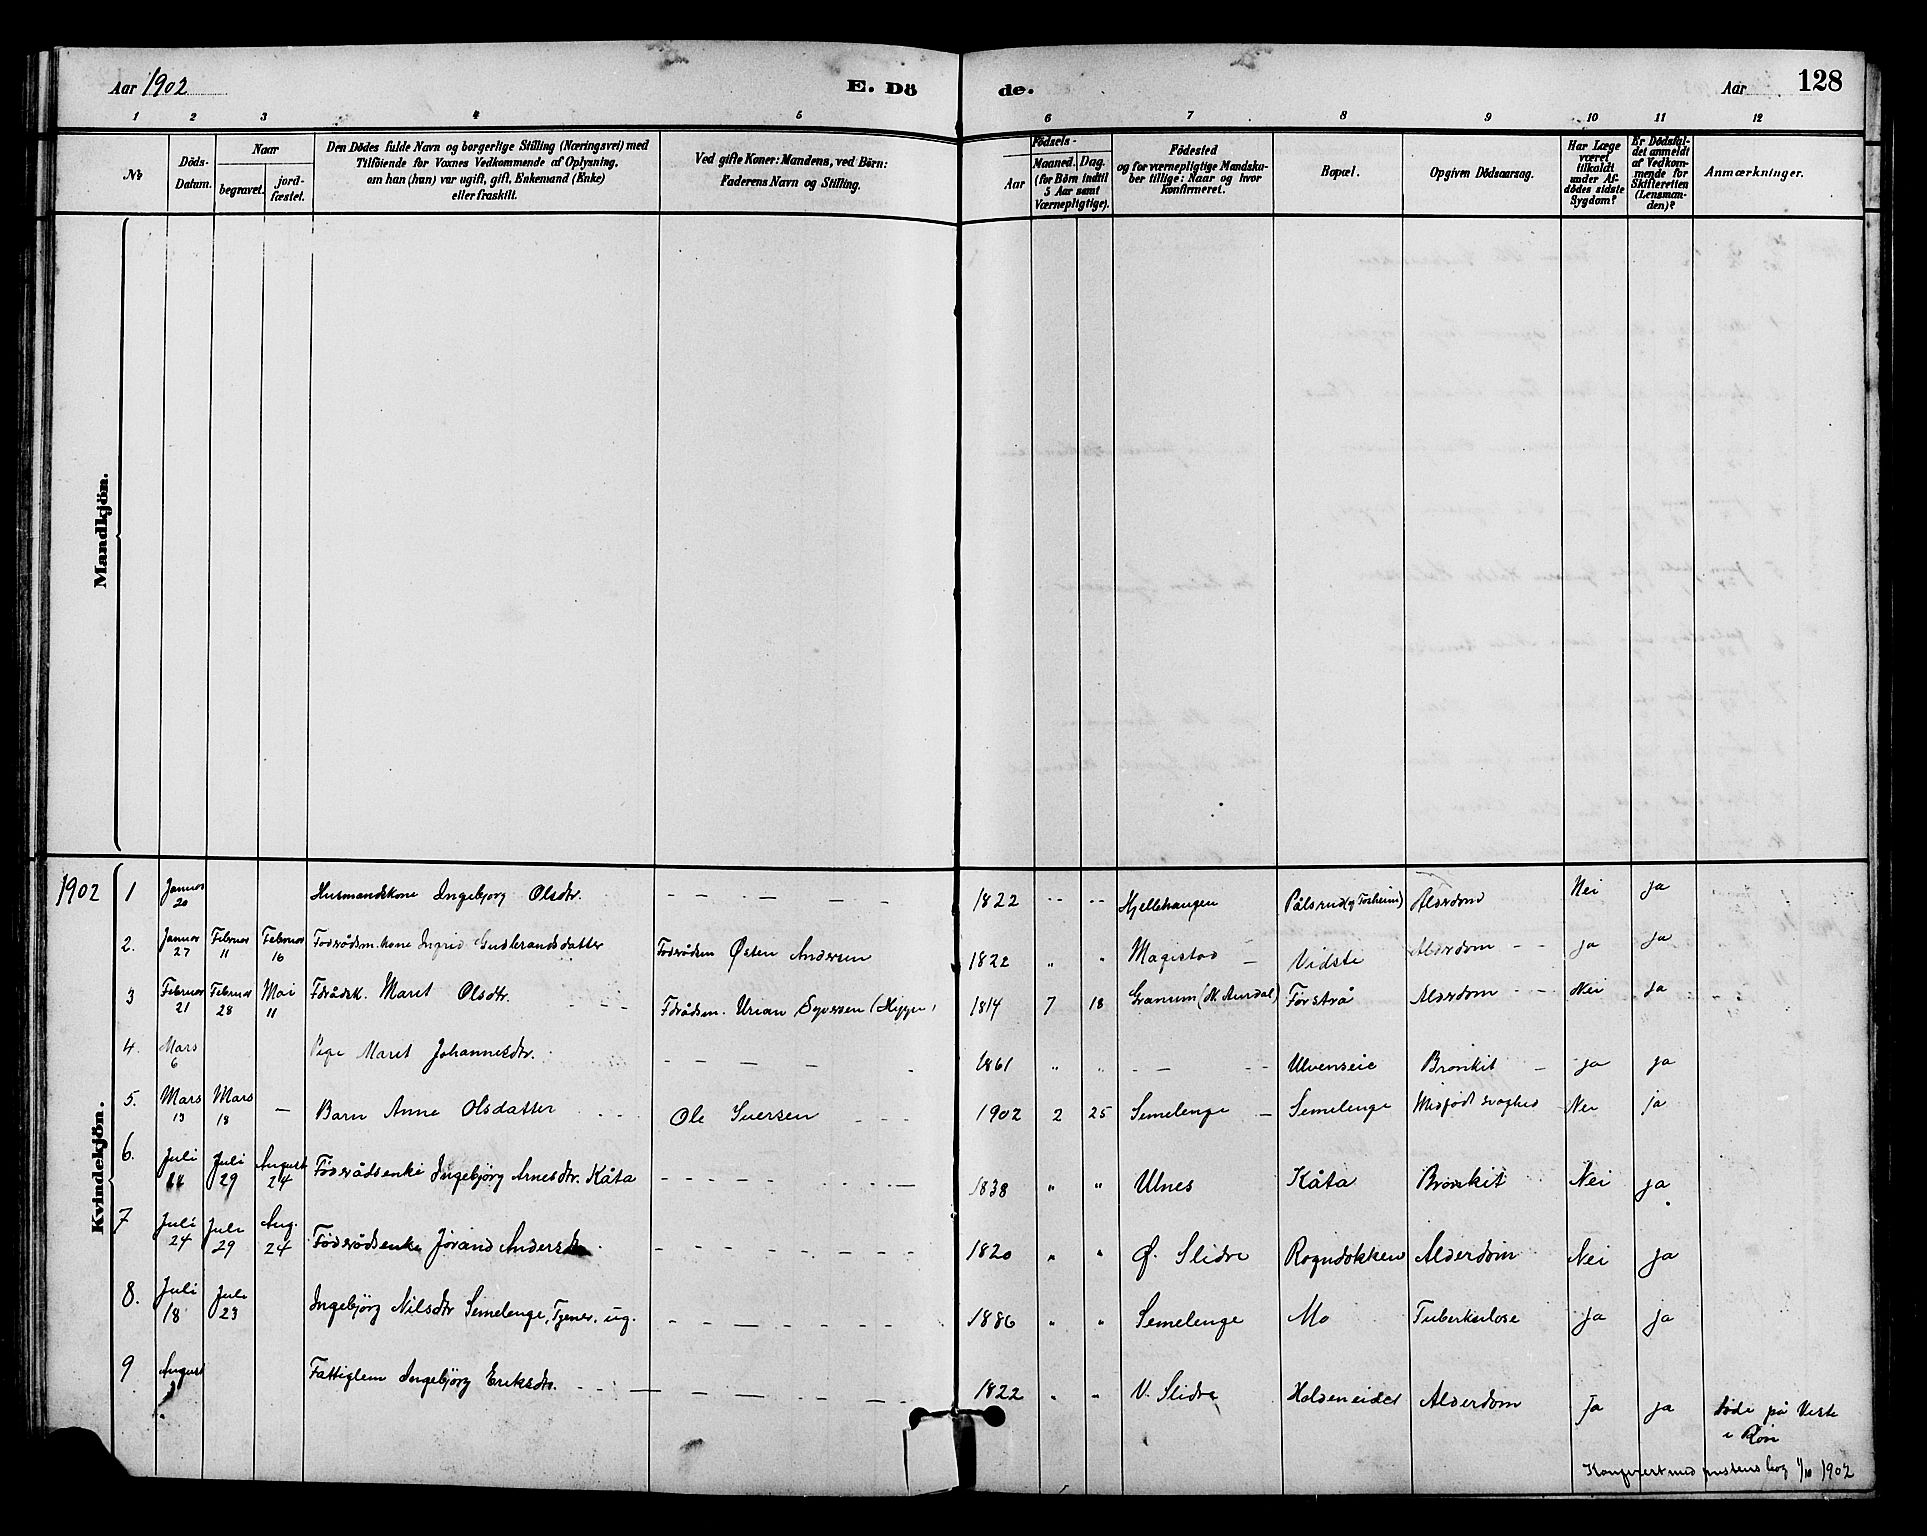 Aar 1902
E. Dö
de.
Aar
128
1 2 3 4 5 6 7 8 9 10 11 12
No
Döds-
Datum.
Naar
begravet.
jord-
fæstet.
Den Dödes fulde Navn og borgerlige Stilling (Næringsvei) med
Tilföiende for Voxnes Vedkommende af Oplysning,
om han (hun) var ugift, gift, Enkemand (Enke)
eller fraskilt.
Ved gifte Koner: Mandens, ved Börn:
Faderens Navn og Stilling.
Födsels-
Aar
Maaned. Dag.
(for Börn indtil
5 Aar samt
Værnepligtige).
Födested
og for værnepligtige Mandska-
ber tillige: Naar og hvor
konfirmeret.
Bopæl.
Opgiven Dödsaarsag.
Har Læge
været
tilkaldt
under Af-
dödes sidste
Sygdom?
Er Dödsfal-
det anmeldt
af Vedkom-
mende for
Skifteretten
(Lensman-
den)?
Anmærkninger.
Mandkjön.
Kvindekjön.
1902 1 Januar 20 Husmandskone Ingebjorg Olsdtr. - - - - - 1822 - - - - Hjellehaugen Pålsrud (g Tosheim) Alderdom Nei ja
2. Januar 27 Februar 11 Februar 16 Foderådsm.kone Ingrid Gudbrandsdatter Foderådsm Østen Andersen 1822 " " Magistad Vidste Alderdom - - ja ja
3 Februar 21 Februar 28 Mai 11 Fdrådsk. Marit Olsdtr. Fdrådsm. Urian Syversen (Hygge) 1814 7 18 Granum (N. Aurdal) Førstrå Alderdom - - Nei ja
4. Mars 6 Pige Marit Johannesdtr. - - - - 1861 " " - - - - Ulvenseie Bronkit - ja ja
5. Mars 13 Mars 18 - Barn Anne Olsdatter Ole Iversen 1902 2 25 Semelenge - Semelenge Medfødt svaghed Nei ja
6. Juli Juli 29 August 24 Föderådsenke Ingebjörg Arnesdtr. Kåta - - - - 1838 " " Ulnes Kåta Bronkit Nei ja
7 Juli 24 Juli 29 Aug. 24 Föderådsenke Jørand Andersdtr - - - - 1820 " " Ø. Slidre Rogndokken Alderdom Nei ja
8. Juli 18 Juli 23 Ingebjörg Nilsdtr Semelenge, Tjener, ug. - - - - 1886 " " Semelenge Mo Tuberkulose ja ja
9 August Fattiglem Ingebjörg Eriksdtr. - - - - 1822 " " V. Slidre Holdeneidet Alderdom Ja ja döde på Viste
i Røn
Konferert med prestens bog 1/10 1902